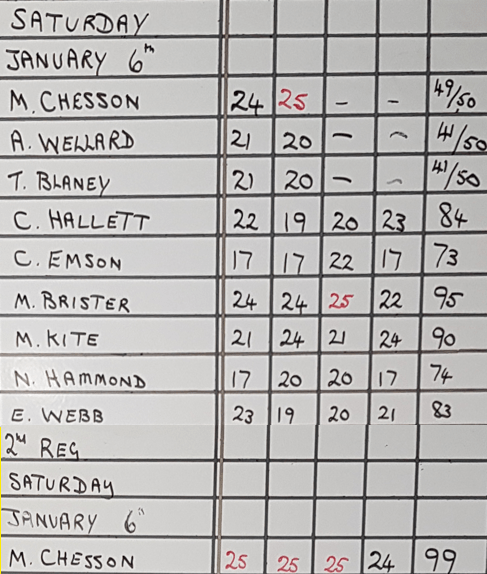 SATURDAY
JANUARY 6th
M. CHESSON 24 25 - - 49/50
A. WELLARD 21 20 - - 41/50
T. BLANEY 21 20 - - 41/50
C. HALLETT 22 19 20 23 84
C. EMSON 17 17 22 17 73
M. BRISTER 24 24 25 22 95
M. KITE 21 24 21 24 90
N. HAMMOND 17 20 20 17 74
E. WEBB 23 19 20 21 83
2nd REG
SATURDAY
JANUARY 6th
M. CHESSON 25 25 25 24 99